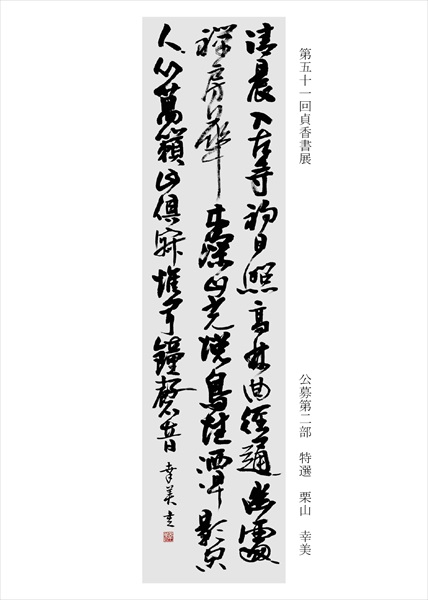 第五十一回貞香書展
公募第二部 特選 栗山 幸美
清晨入古寺初日照高林曲徑通幽處
禪房華木深山光悦鳥性潭影空
人心萬籟此俱寂惟聞鐘磬音 幸美書